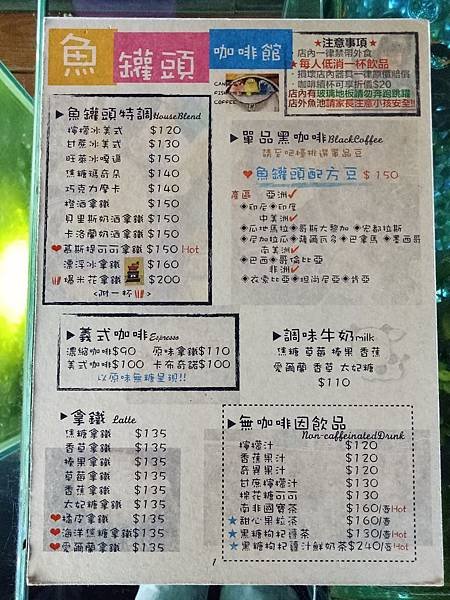 魚罐頭咖啡館
CAN FISH COFFEE
★注意事項★
店內一律禁帶外食
★每人低消一杯飲品
損壞店內器具一律原價賠償
咖啡續杯可享折價$20
店內有玻璃地板請勿奔跑跳躍
店外魚池請家長注意小孩安全!!
▶魚罐頭特調HouseBlend
檸檬冰美式 $120
甘蔗冰美式 $130
旺萊冰嘎逼 $150
焦糖瑪奇朵 $140
巧克力摩卡 $140
橙酒拿鐵 $150
貝里斯奶酒拿鐵 $150
卡洛蘭奶酒拿鐵 $150
❤慕斯提可可拿鐵 $150 Hot
漂浮冰拿鐵 $160
爆米花拿鐵 $200
<附一杯>
▶單品黑咖啡BlackCoffee
請至吧檯挑選單品豆
❤魚罐頭配方豆 $150
產區 亞洲✓
◈印尼◈印度
中美洲✓
◈瓜地馬拉◈哥斯大黎加◈宏都拉斯
◈尼加拉瓜◈薩爾瓦多◈巴拿馬◈墨西哥
南美洲✓
◈巴西◈哥倫比亞
非洲✓
◈衣索比亞◈坦尚尼亞◈肯亞
▶義式咖啡Espresso
濃縮咖啡$90 原味拿鐵$110
美式咖啡$100 卡布奇諾$100
以原味無糖呈現!!
▶調味牛奶milk
焦糖 草莓 榛果 香蕉
愛爾蘭 香草 太妃糖
$110
▶拿鐵 Latte
焦糖拿鐵 $135
香草拿鐵 $135
榛果拿鐵 $135
草莓拿鐵 $135
香蕉拿鐵 $135
太妃糖拿鐵 $135
❤橘皮拿鐵 $135
❤海洋焦糖拿鐵$135
❤愛爾蘭拿鐵 $135
▶無咖啡因飲品
Non-caffeinatedDrink
檸檬汁 $120
香蕉果汁 $120
奇異果汁 $120
甘蔗檸檬汁 $130
棉花糖可可 $130
南非國寶茶 $160/壺Hot
★甜心果粒茶 $160/壺
★黑糖枸杞薑茶 $130/壺Hot
★黑糖枸杞薑汁鮮奶茶$240/壺Hot
1